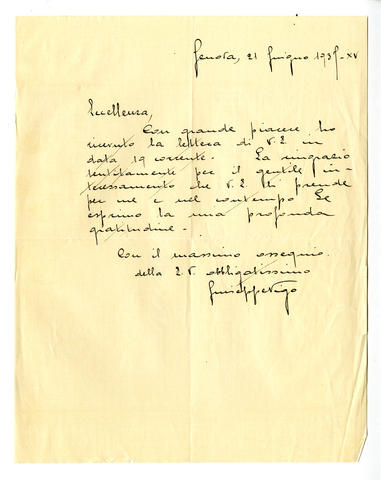 Genova, 21 Giugno 1937-XV
Eccellenza,
Con grande piacere ho
ricevuto la lettera di V.E. in
data 19 corrente. La ringrazio
sentitamente per il gentile in-
teressamento che V.E. si prende
per me e nel contempo Le
esprimo la mia profonda
gratitudine.
Con il massimo ossequio.
della E.V. obbligatissimo
Giuseppe Vigo